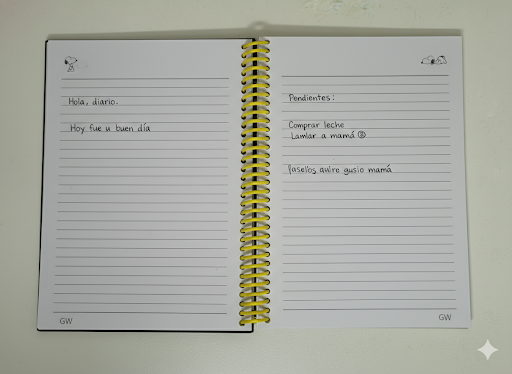 Hola, diario.
Hoy fue u buen día
GW
Pendientes:
Comprar leche
Lamlar a mamá
mamá
GW